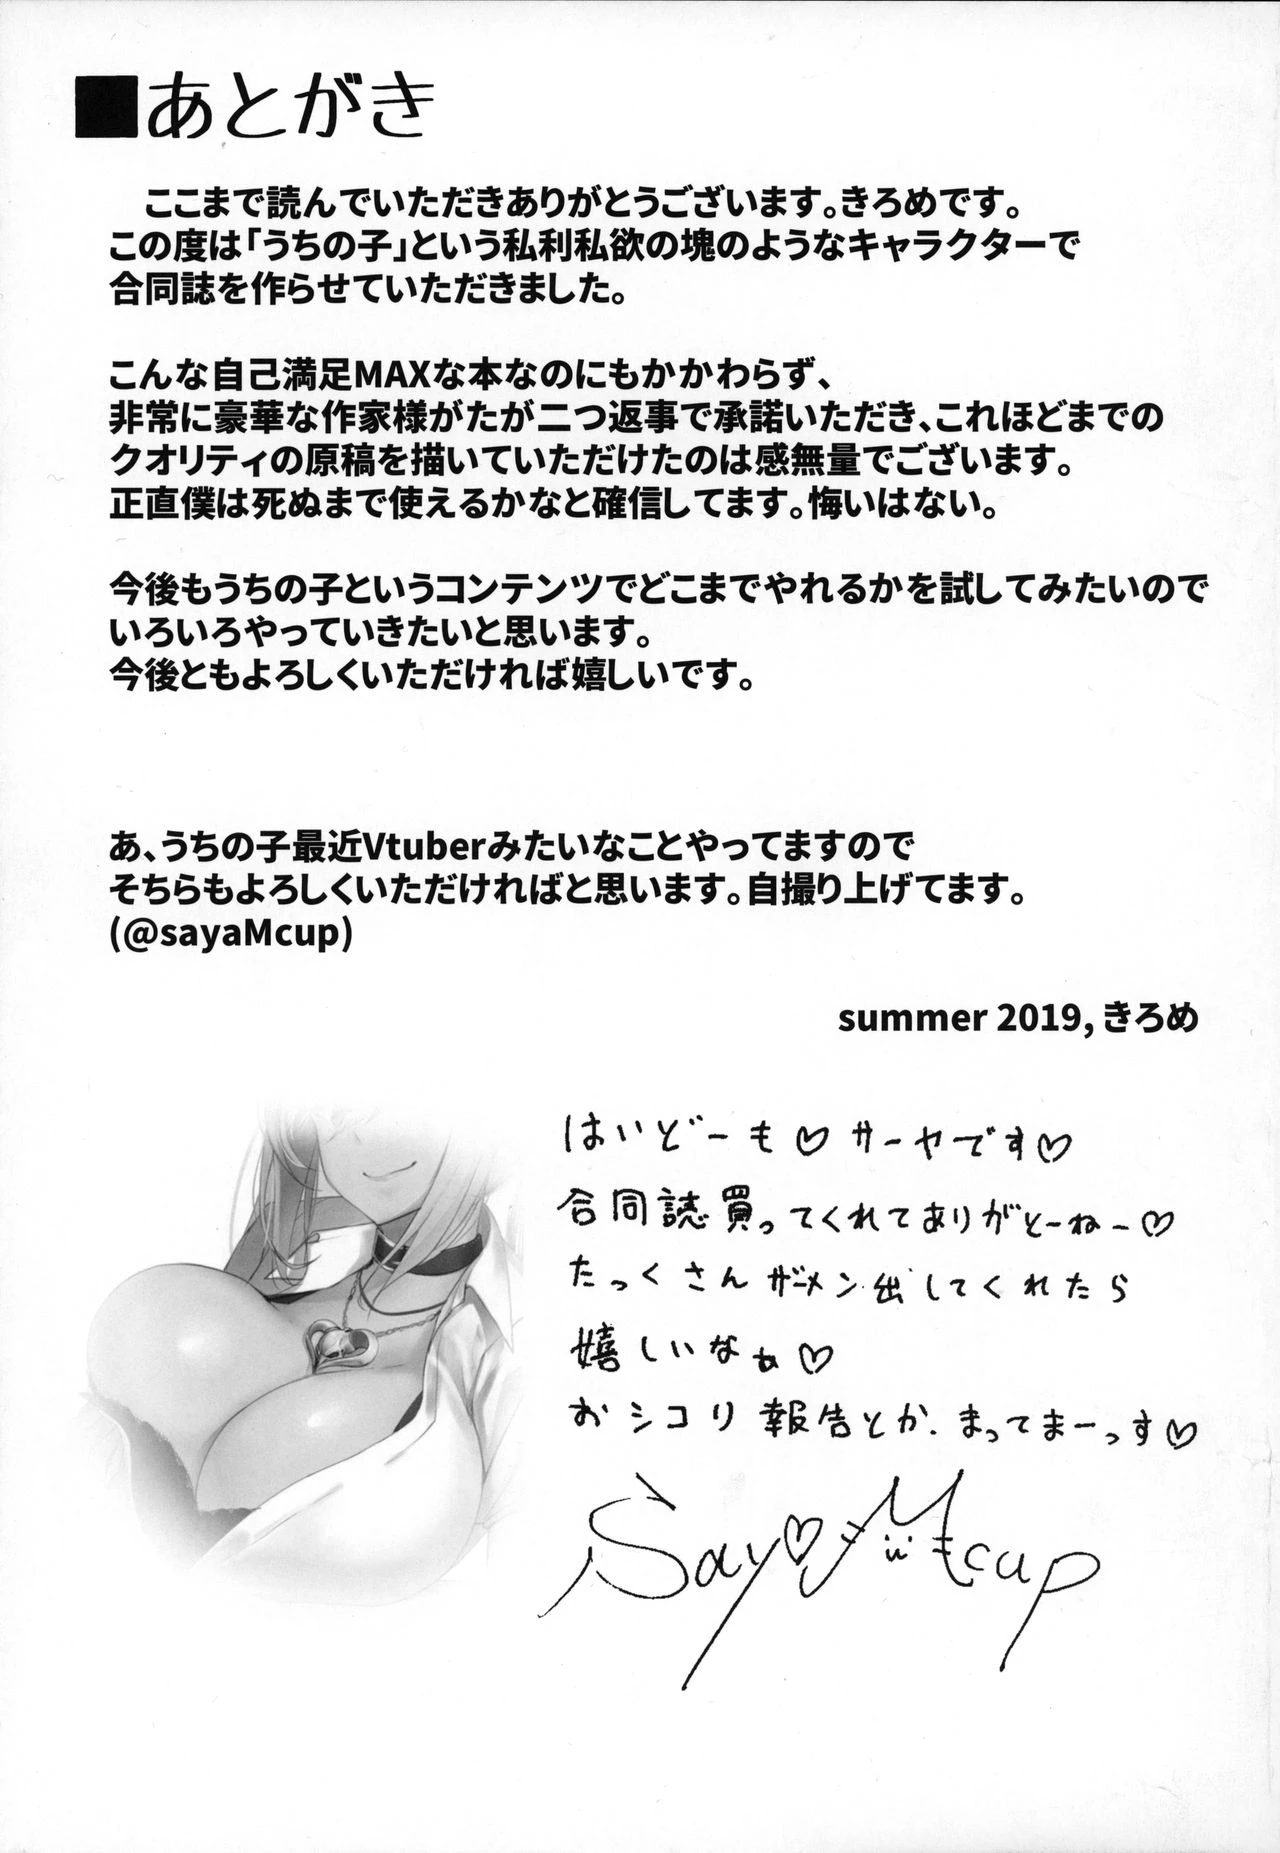 ■あとがき
ここまで読んでいただきありがとうございます。きろめです。
この度は「うちの子」という私利私欲の塊のようなキャラクターで
合同誌を作らせていただきました。
こんな自己満足MAXな本なのにもかかわらず、
非常に豪華な作家様がたが二つ返事で承諾いただき、これほどまでの
クオリティの原稿を描いていただけたのは感無量でございます。
正直僕は死ぬまで使えるかなと確信してます。悔いはない。
今後もうちの子というコンテンツでどこまでやれるかを試してみたいので
いろいろやっていきたいと思います。
今後ともよろしくいただければ嬉しいです。
あ、うちの子最近Vtuberみたいなことやってますので
そちらもよろしくいただければと思います。自撮り上げてます。
(@sayaMcup)
summer 2019, きろめ
はいどーも♡サーヤです♡
合同誌買ってくれてありがとーねー♡
たっくさんザーメン出してくれたら
嬉しいなぁ♡
おシコリ報告とか、まってまーっす♡
Say♡Mcup